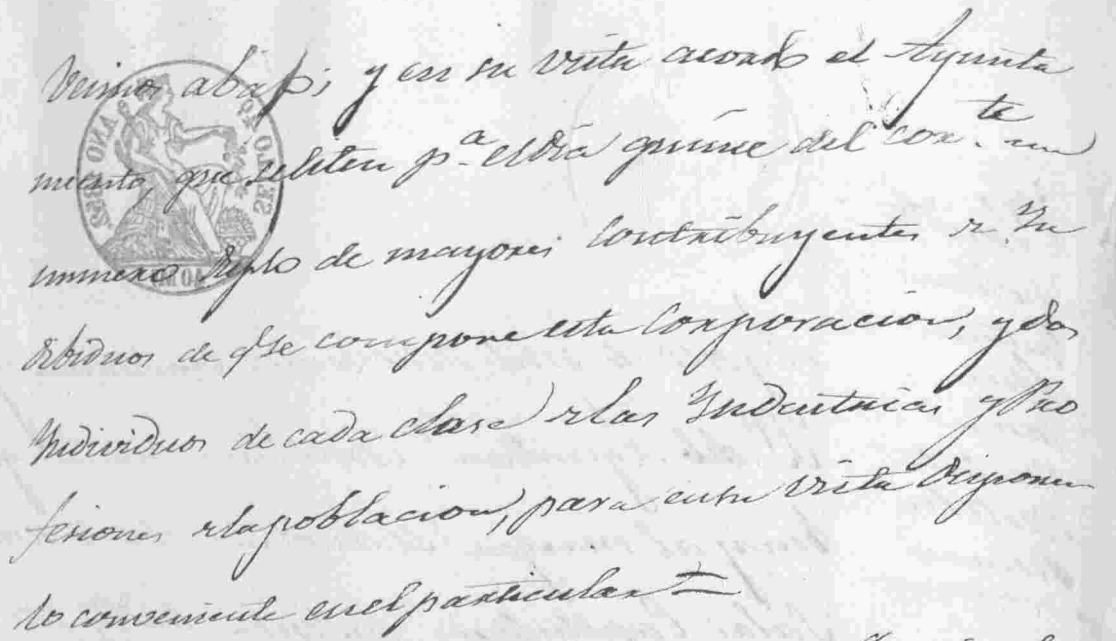 Veimos abajo; y en su vista acordo el Ayunta
miento, que se siten pª el dia quince del corte un
numero triplo de mayores contribuyentes de Yn
dibiduos de qe se compone esta Corporacion, y dos
Yndividuos de cada clase de las Yndustrias y Pro
fesiones de la poblacion, para en su vista disponer
lo conveniente en el particular =
SELLO 4º
AÑO 1882